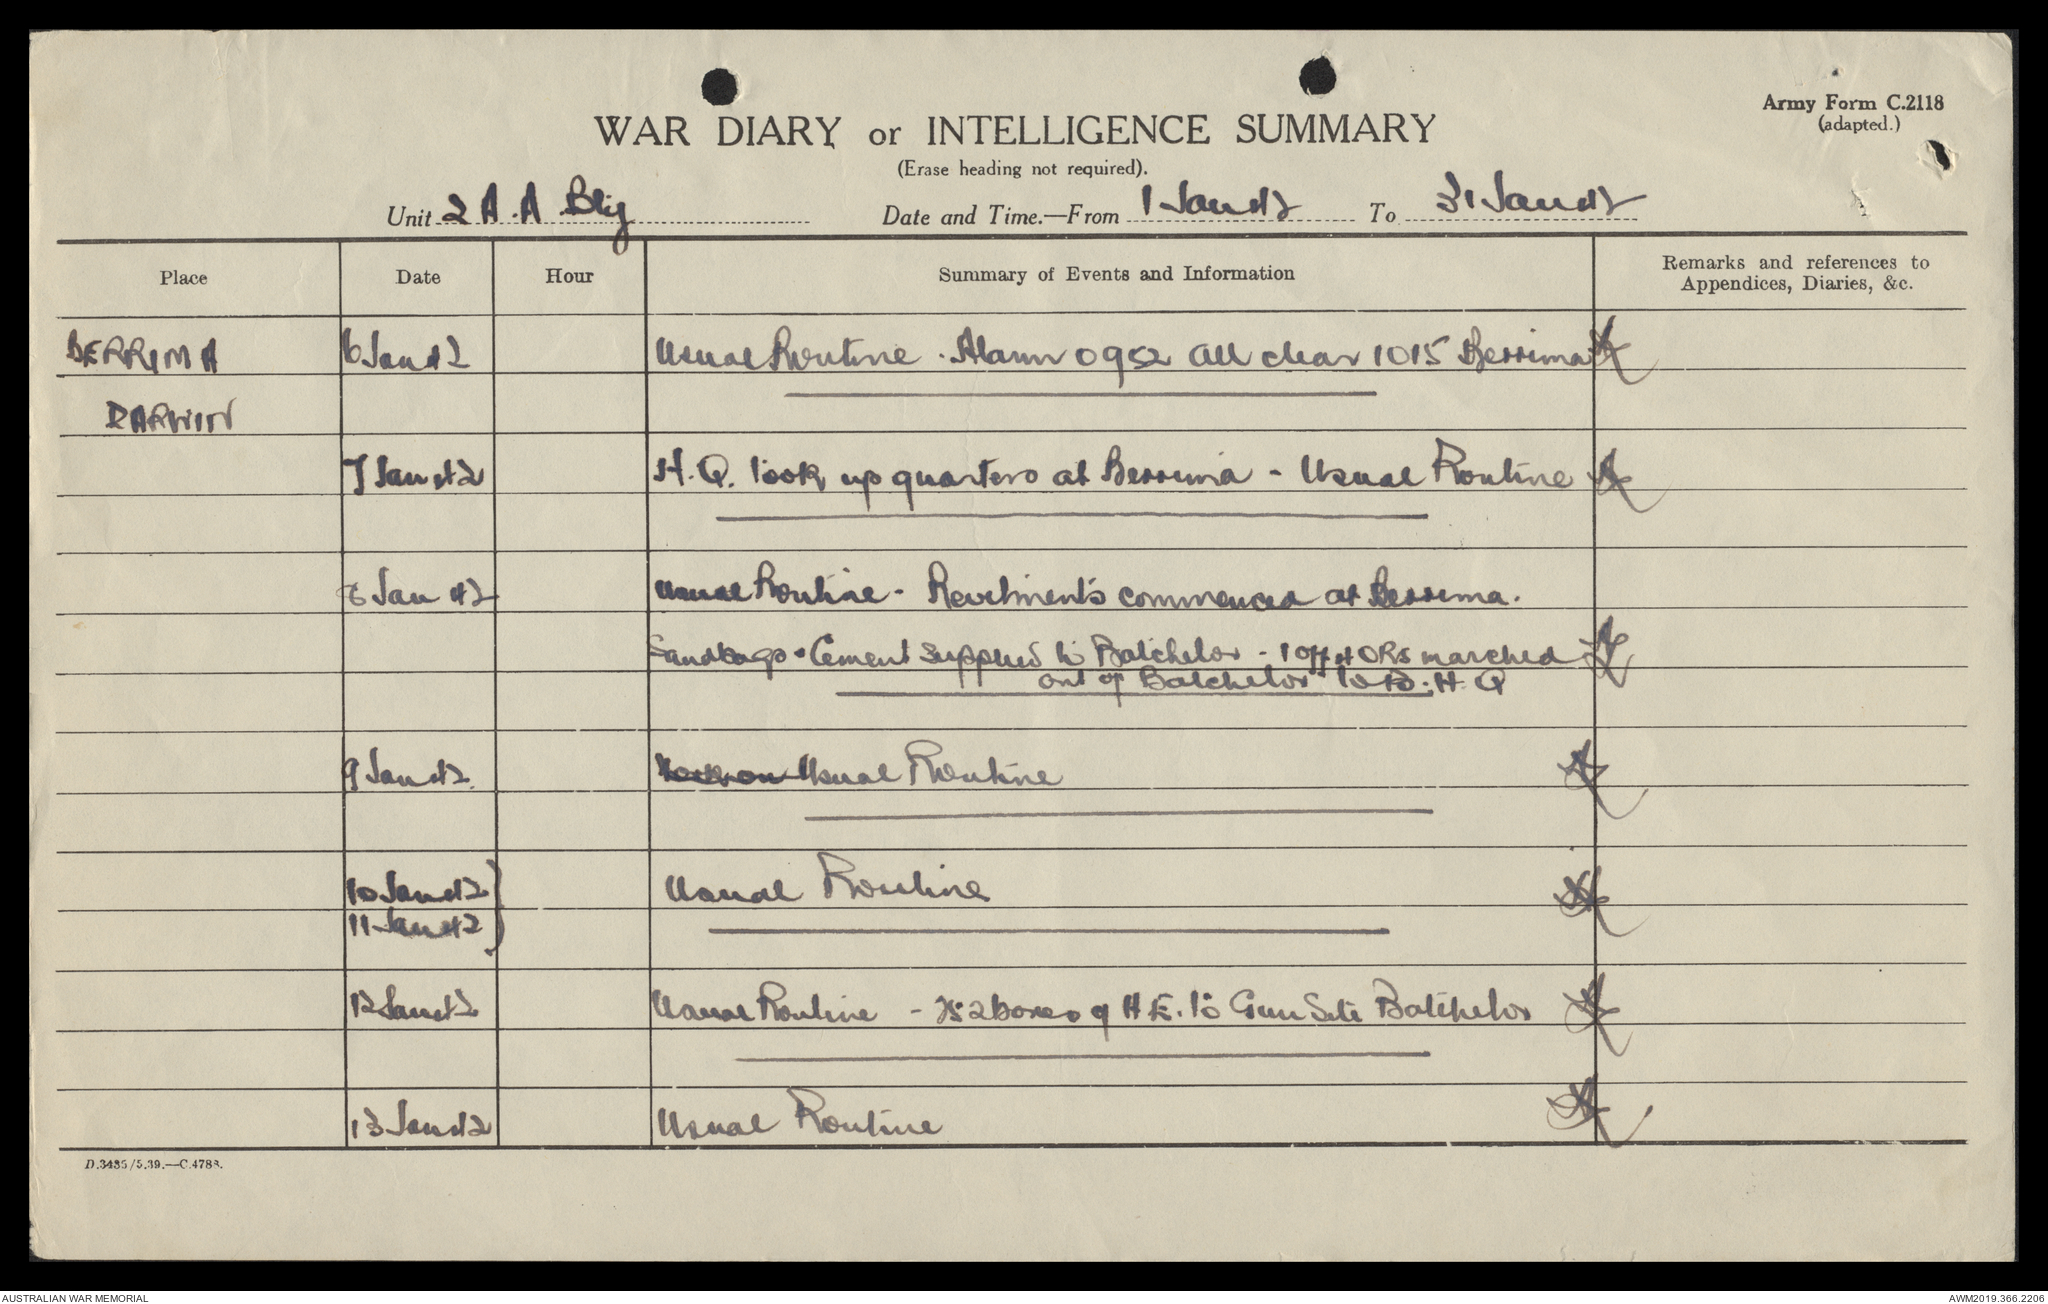 Army Form C.2118
(adapted.)
WAR DIARY or INTELLIGENCE SUMMARY
(Erase heading not required).
Unit 2 A.A. Bty Date and Time.—From 1 Jan 42 To 31 Jan 42
Place Date Hour Summary of Events and Information Remarks and references to
Appendices, Diaries, &c.
BERRIMA 6 Jan 42 Usual Routine. Alarm 0952 All clear 1015 Berrima
DARWIN
7 Jan 42 H.Q. took up quarters at Berrima - Usual Routine
8 Jan 42 Usual Routine - Revetments commenced at Berrima.
Sandbags & Cement supplied to Batchelor - 1 off 4 ORs marched
out of Batchelor to B.H.Q
9 Jan 42. Usual Routine
10 Jan 42 } Usual Routine
11 Jan 42 }
12 Jan 42 Usual Routine - 752 boxes of H.E. to Gun Site Batchelor
13 Jan 42 Usual Routine
D.3435/5.39.—C.4788.
AUSTRALIAN WAR MEMORIAL AWM2019.366.2206